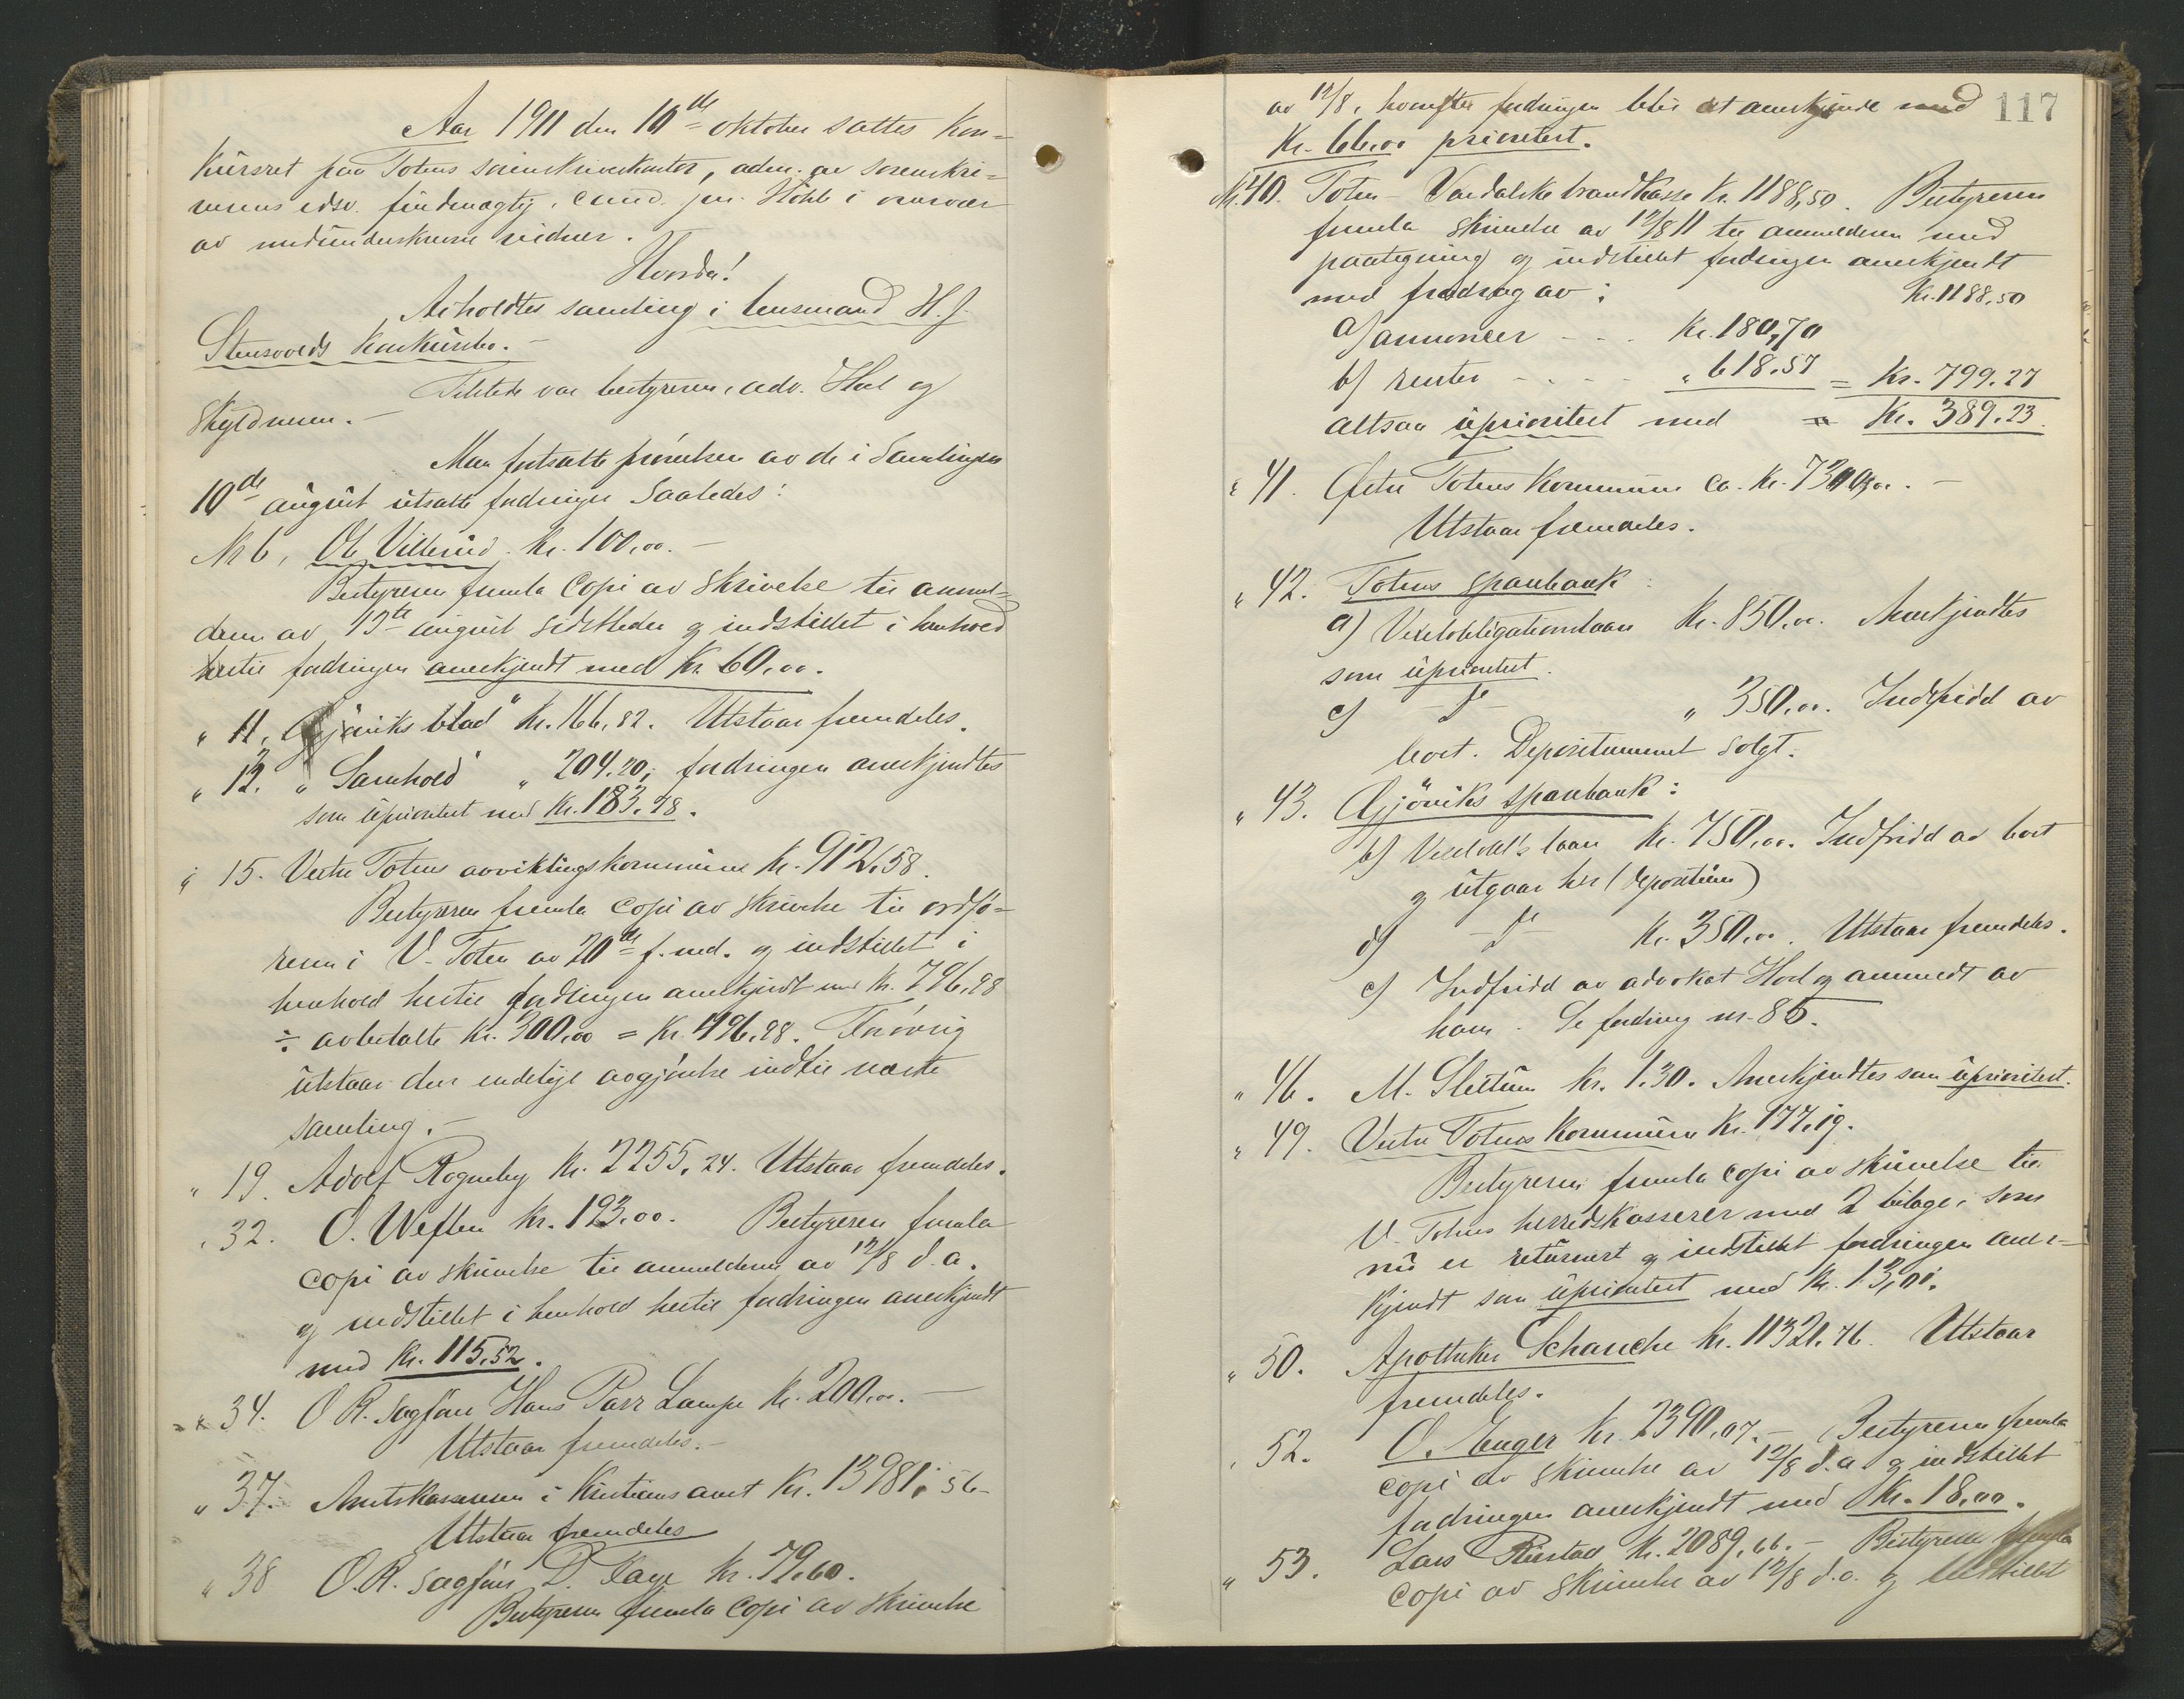 Aar 1911 den 10de oktober sattes kon-
kursret paa Totens sorenskriverkontor, adm. av sorenskri-
verens edsv. fuldmægtig, cand. jur. i overvær
av medunderskrevne vidner.
Hvorda!
Avholdtes samling i lensmand H. J.
Stensvolds konkursbo. -
Tilstede var bestyreren, adv. Hoel og
skyldneren. -
Man fortsatte prøvelsen av de i Samlingen
10de august utsatte fordringer saaledes:
Nr 6, Ole Villerud. Kr. 100,00. -
Bestyreren fremla Copi av skrivelse til anmel-
deren av 15te august sidstleden og indstillet i henhold
hertil fordringen anerkjendt med Kr. 60,00.
" 11. Gjøviks blad" kr. 166,82. Utstaar fremdeles.
" 12. "Samhold" " 204.20; fordringen anerkjendtes
som uprioritert med Kr. 183.98.
" 15. Vestre Totens avviklingskommune Kr. 912,58.
Bestyreren fremla Copi av skrivelse til ordfø-
reren i V. Toten av 20de f. md. og indstillet i
henhold hertil fordringen anerkjendt med Kr. 796,98
÷ avbetalte Kr. 300,00 = Kr. 496.98. Forøvrig
utstaar den endelige avgjørelse indtil næste
samling. -
" 19. Adolf Rogneby Kr. 2255,24. Utstaar fremdeles.
" 32. O. Weflen Kr. 193.00. Bestyreren fremla
Copi av skrivelse til anmelderen av 12/8 d.a.
og indstillet i henhold hertil fordringen anerkjendt
med Kr. 115.52.
" 34. O. R. Sagfører Hans Parr Lampe Kr. 200,00. -
Utstaar fremdeles. -
" 37. Amtskassereren i Kristians amt Kr. 13981,56 -
Utstaar fremdeles
" 38 O. R. sagfører D. Kr. 79,60.
Bestyreren fremla Copi av skrivelse
117
av 12/8, hvorefter fordringen blir at anerkjende med
Kr. 66,00 prioritert.
Nr. 40. Toten - Vardalske brandkasse Kr. 1188,50. Bestyreren
fremla skrivelse av 12/8 11 til anmelderen med
paategning og indstillet fordringen anerkjendt
med fradrag av: Kr. 1188,50
a) annoncer - - - Kr. 180,70
b) renter - - - - " 618.57 = Kr. 799.27
altsaa uprioritert med Kr. 389.23.
" 41. Østre Totens Kommune ca. Kr. -
Utstaar fremdeles.
" 42. Totens sparebank:
a) Vexelobligationslaan Kr. 850,00. Anerkjendtes
som uprioritert.
c) - do - " 350,00. Indfridd av
boet. Depositummet solgt.
" 43. Gjøviks sparebank:
b) Vexelobl's laan Kr. 750,00. Indfridd av boet
og utgaar her (depositum)
d) - do - Kr. 350,00. Utstaar fremdeles.
c) Indfridd av advokat Hoel og anmeldt av
ham. Se fordring nr. 85.
" 46. M. Slettum Kr. 1.30. Anerkjendtes som uprioritert.
" 49. Vestre Totens Kommune Kr. 177,19.
Bestyreren fremla copi av skrivelse til
V. Totens herredskasserer med 2 bilage, som
nu er returnert og indstillet fordringen aner-
kjendt som uprioritert med Kr. 13,01.
" 50. Apotheker Schanche Kr. 11321.76. Utstaar
fremdeles.
" 52. O. Enger Kr. 2390,07. - Bestyreren fremla
copi av skrivelse av 12/8 d.a. og indstillet
fordringen anerkjendt med Kr. 18,00.
" 53. Lars Kr. 2089,66. - Bestyreren fremla
copi av skrivelse av 12/8 d.a. og indstillet